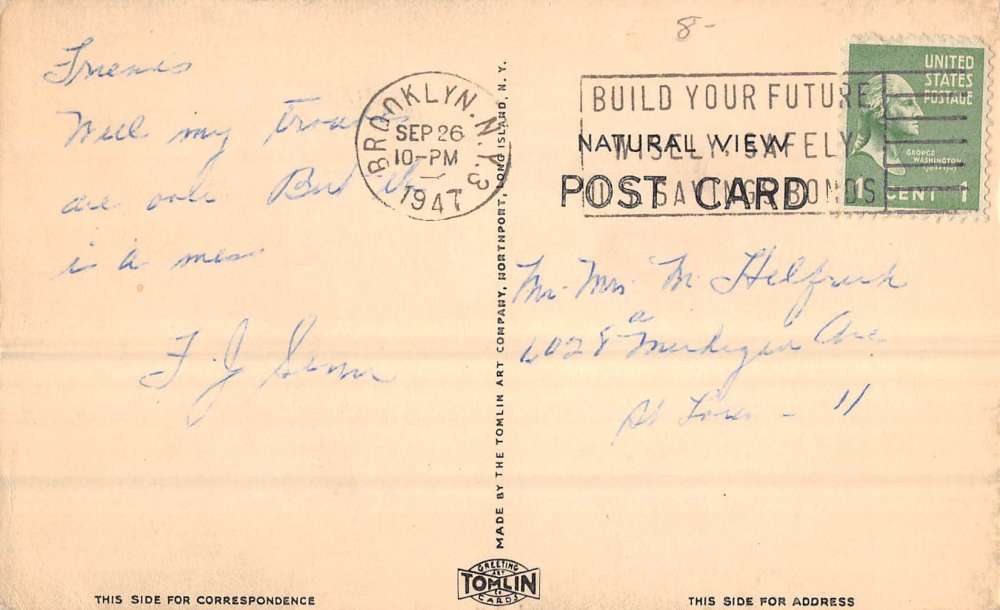 8-
Friends
Well my
are over
is a mess
F. J.
BROOKLYN, N.Y. 3
SEP 26
10-PM
1947
BUILD YOUR FUTURE
WISELY, SAFELY
U.S. SAVINGS BONDS
UNITED
STATES
POSTAGE
GEORGE
WASHINGTON
1 CENT 1
NATURAL VIEW
POST CARD
Mr. Mrs. M. Helfrich
6028 a Michigan Ave
St Louis - 11
MADE BY THE TOMLIN ART COMPANY, NORTHPORT, LONG ISLAND, N. Y.
GREETING
ART
TOMLIN
CO
CARDS
THIS SIDE FOR CORRESPONDENCE
THIS SIDE FOR ADDRESS